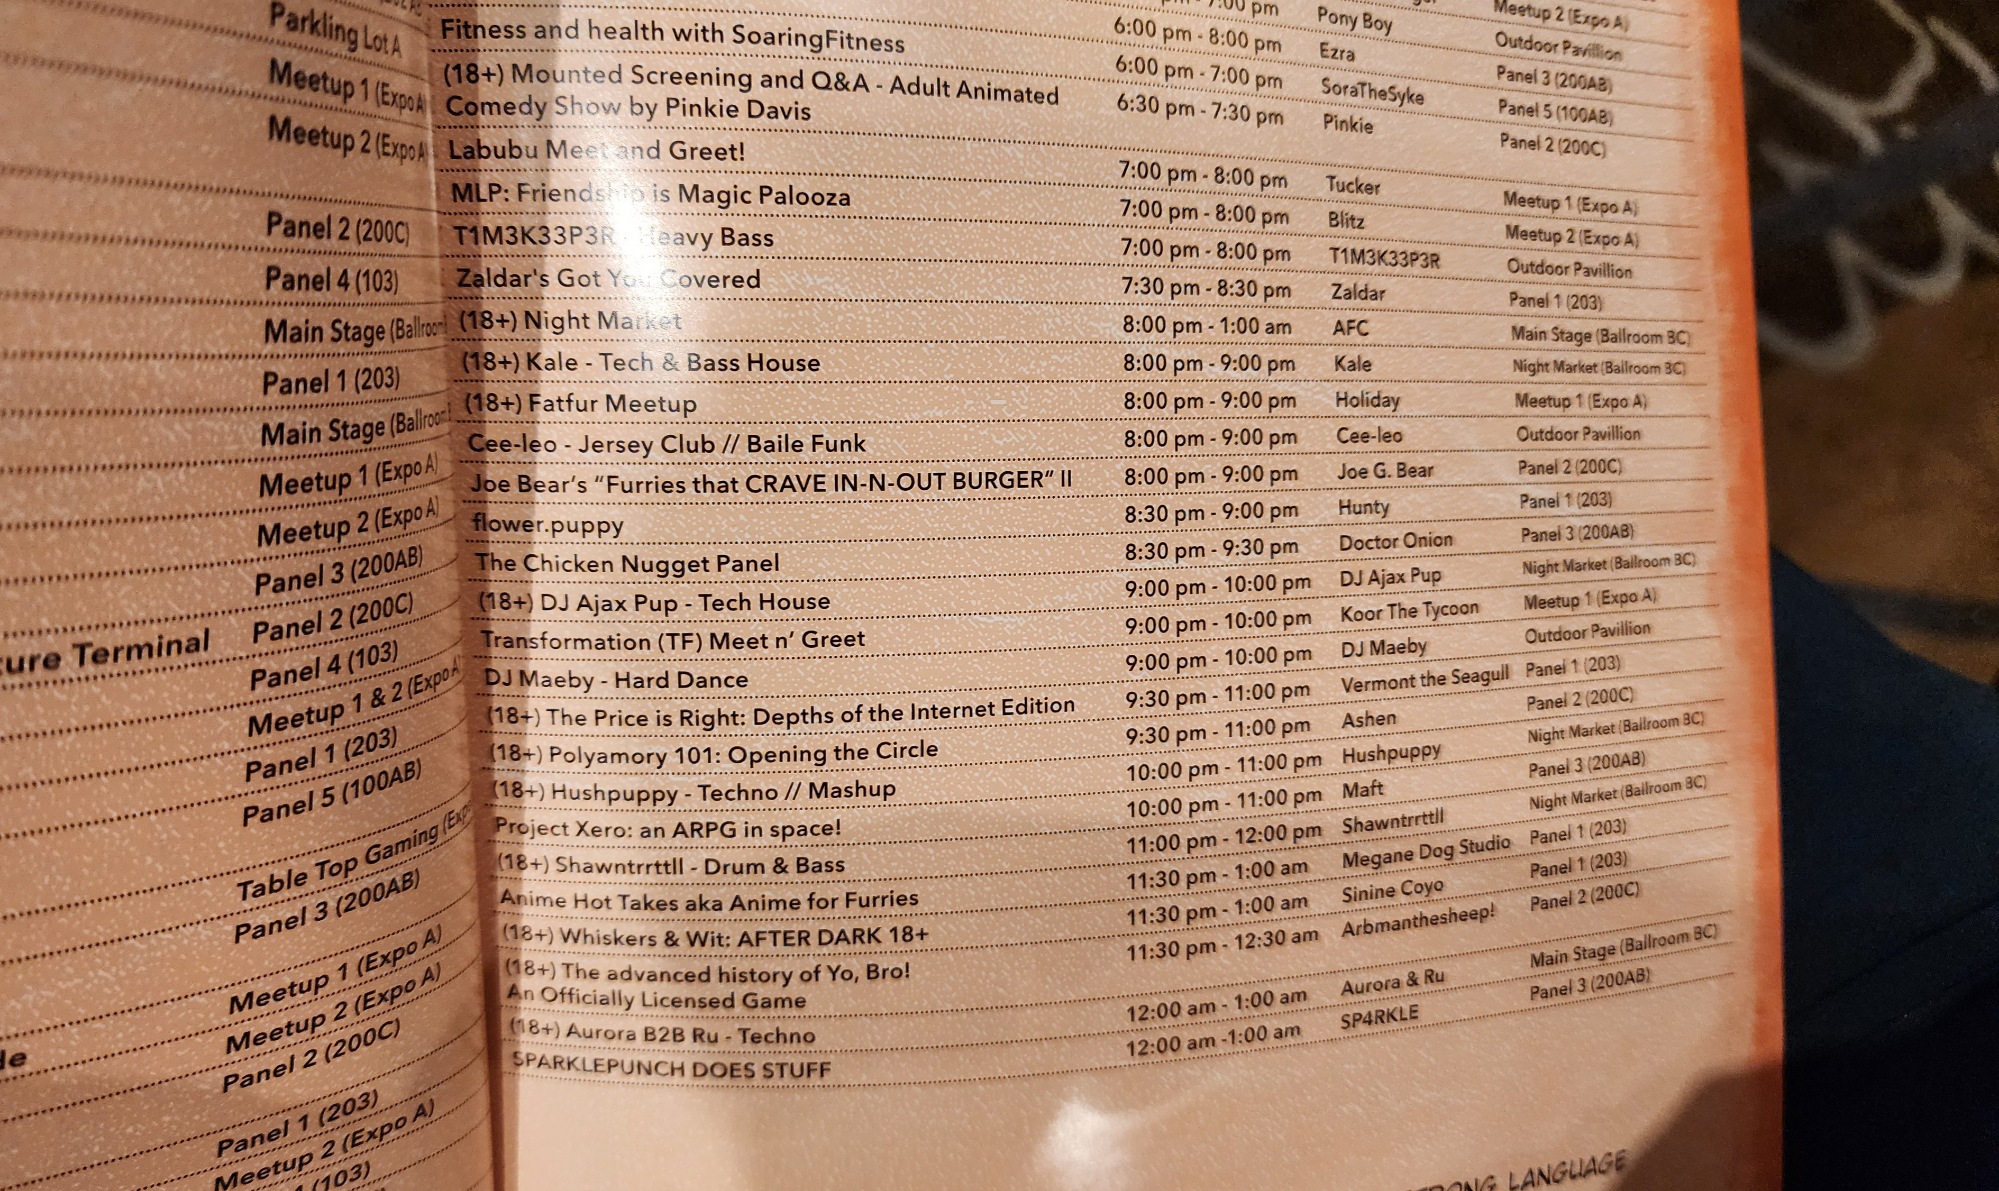 Parkling Lot A
Meetup 1 (Expo A
Meetup 2 (Expo A
Panel 2 (200C)
Panel 4 (103)
Main Stage (Ballroom
Panel 1 (203)
Main Stage (Ballroom
Meetup 1 (Expo A)
Meetup 2 (Expo A)
Panel 3 (200AB)
Panel 2 (200C)
ure Terminal
Panel 4 (103)
Meetup 1 & 2 (Expo A)
Panel 1 (203)
Panel 5 (100AB)
Table Top Gaming (Exp
Panel 3 (200AB)
Meetup 1 (Expo A)
Meetup 2 (Expo A)
Panel 2 (200C)
Panel 1 (203)
Meetup 2 (Expo A)
(103)
7:00 pm Pony Boy Meetup 2 (Expo A)
Fitness and health with SoaringFitness 6:00 pm - 8:00 pm Ezra Outdoor Pavillion
6:00 pm - 7:00 pm SoraTheSyke Panel 3 (200AB)
(18+) Mounted Screening and Q&A - Adult Animated 6:30 pm - 7:30 pm Pinkie Panel 5 (100AB)
Comedy Show by Pinkie Davis Panel 2 (200C)
Labubu Meet and Greet! 7:00 pm - 8:00 pm Tucker Meetup 1 (Expo A)
MLP: Friendship is Magic Palooza 7:00 pm - 8:00 pm Blitz Meetup 2 (Expo A)
T1M3K33P3R - Heavy Bass 7:00 pm - 8:00 pm T1M3K33P3R Outdoor Pavillion
Zaldar's Got You Covered 7:30 pm - 8:30 pm Zaldar Panel 1 (203)
(18+) Night Market 8:00 pm - 1:00 am AFC Main Stage (Ballroom BC)
(18+) Kale - Tech & Bass House 8:00 pm - 9:00 pm Kale Night Market (Ballroom BC)
(18+) Fatfur Meetup 8:00 pm - 9:00 pm Holiday Meetup 1 (Expo A)
Cee-leo - Jersey Club // Baile Funk 8:00 pm - 9:00 pm Cee-leo Outdoor Pavillion
Joe Bear's "Furries that CRAVE IN-N-OUT BURGER" II 8:00 pm - 9:00 pm Joe G. Bear Panel 2 (200C)
flower.puppy 8:30 pm - 9:00 pm Hunty Panel 1 (203)
The Chicken Nugget Panel 8:30 pm - 9:30 pm Doctor Onion Panel 3 (200AB)
(18+) DJ Ajax Pup - Tech House 9:00 pm - 10:00 pm DJ Ajax Pup Night Market (Ballroom BC)
Transformation (TF) Meet n' Greet 9:00 pm - 10:00 pm Koor The Tycoon Meetup 1 (Expo A)
DJ Maeby - Hard Dance 9:00 pm - 10:00 pm DJ Maeby Outdoor Pavillion
(18+) The Price is Right: Depths of the Internet Edition 9:30 pm - 11:00 pm Vermont the Seagull Panel 1 (203)
(18+) Polyamory 101: Opening the Circle 9:30 pm - 11:00 pm Ashen Panel 2 (200C)
(18+) Hushpuppy - Techno // Mashup 10:00 pm - 11:00 pm Hushpuppy Night Market (Ballroom BC)
Project Xero: an ARPG in space! 10:00 pm - 11:00 pm Maft Panel 3 (200AB)
(18+) Shawntrrttll - Drum & Bass 11:00 pm - 12:00 pm Shawntrrttll Night Market (Ballroom BC)
Anime Hot Takes aka Anime for Furries 11:30 pm - 1:00 am Megane Dog Studio Panel 1 (203)
(18+) Whiskers & Wit: AFTER DARK 18+ 11:30 pm - 1:00 am Sinine Coyo Panel 1 (203)
(18+) The advanced history of Yo, Bro! 11:30 pm - 12:30 am Arbmanthesheep! Panel 2 (200C)
An Officially Licensed Game
(18+) Aurora B2B Ru - Techno 12:00 am - 1:00 am Aurora & Ru Main Stage (Ballroom BC)
SPARKLEPUNCH DOES STUFF 12:00 am -1:00 am SP4RKLE Panel 3 (200AB)
LANGUAGE